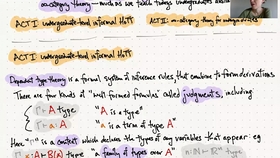 ACT I undergraduate-level informal HoTT
ACT II: ∞-category theory for undergraduates
ACT I undergraduate-level informal HoTT
Dependent type theory is a formal system of inference rules that combine to form derivations
There are four kinds of "well formed formulas" called judgments, including:
Γ ⊢ A type "A is a type"
Γ ⊢ a : A "a is a term of type A"
Here "Γ" is a context which declares the types of any variables that appear eg
"a family of types over A"